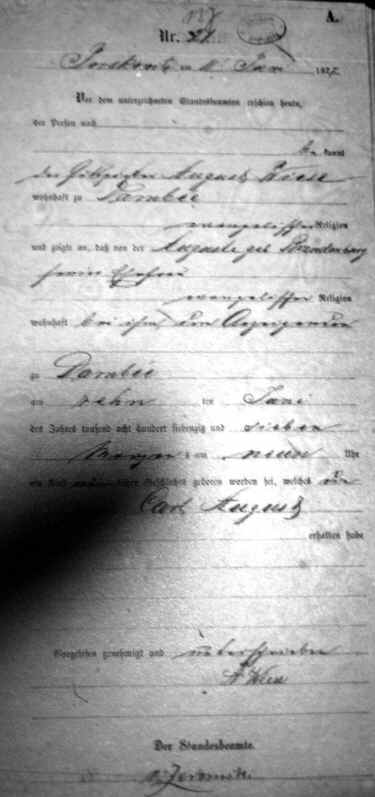 A.
Nr. 21.
am 11 Juni 187
Vor dem unterzeichneten Standesbeamten erschien heute,
der Person nach
kannt
der August Wiese
wohnhaft zu Dambee
evangelischer Religion
und zeigte an, daß von der Auguste geb Brandenburg
seiner Ehefrau
evangelischer Religion
wohnhaft bei ihm dem Anzeigenden
zu Dambee
am zehn ten Juni
des Jahres tausend acht hundert siebenzig und sieben
Morgens um neun Uhr
ein Kind lichen Geschlechts geboren worden sei, welches die
Carl August
erhalten habe
Vorgelesen, genehmigt und unterschrieben
A Wiese
Der Standesbeamte.